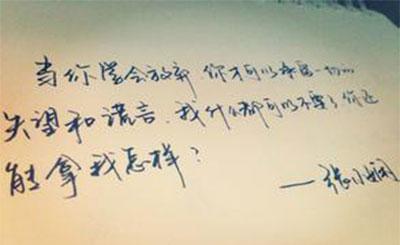 当你学会放弃.你才可以承受一切的
失望和谎言.我什么都可以不要了你还
能拿我怎样?
——张小娴